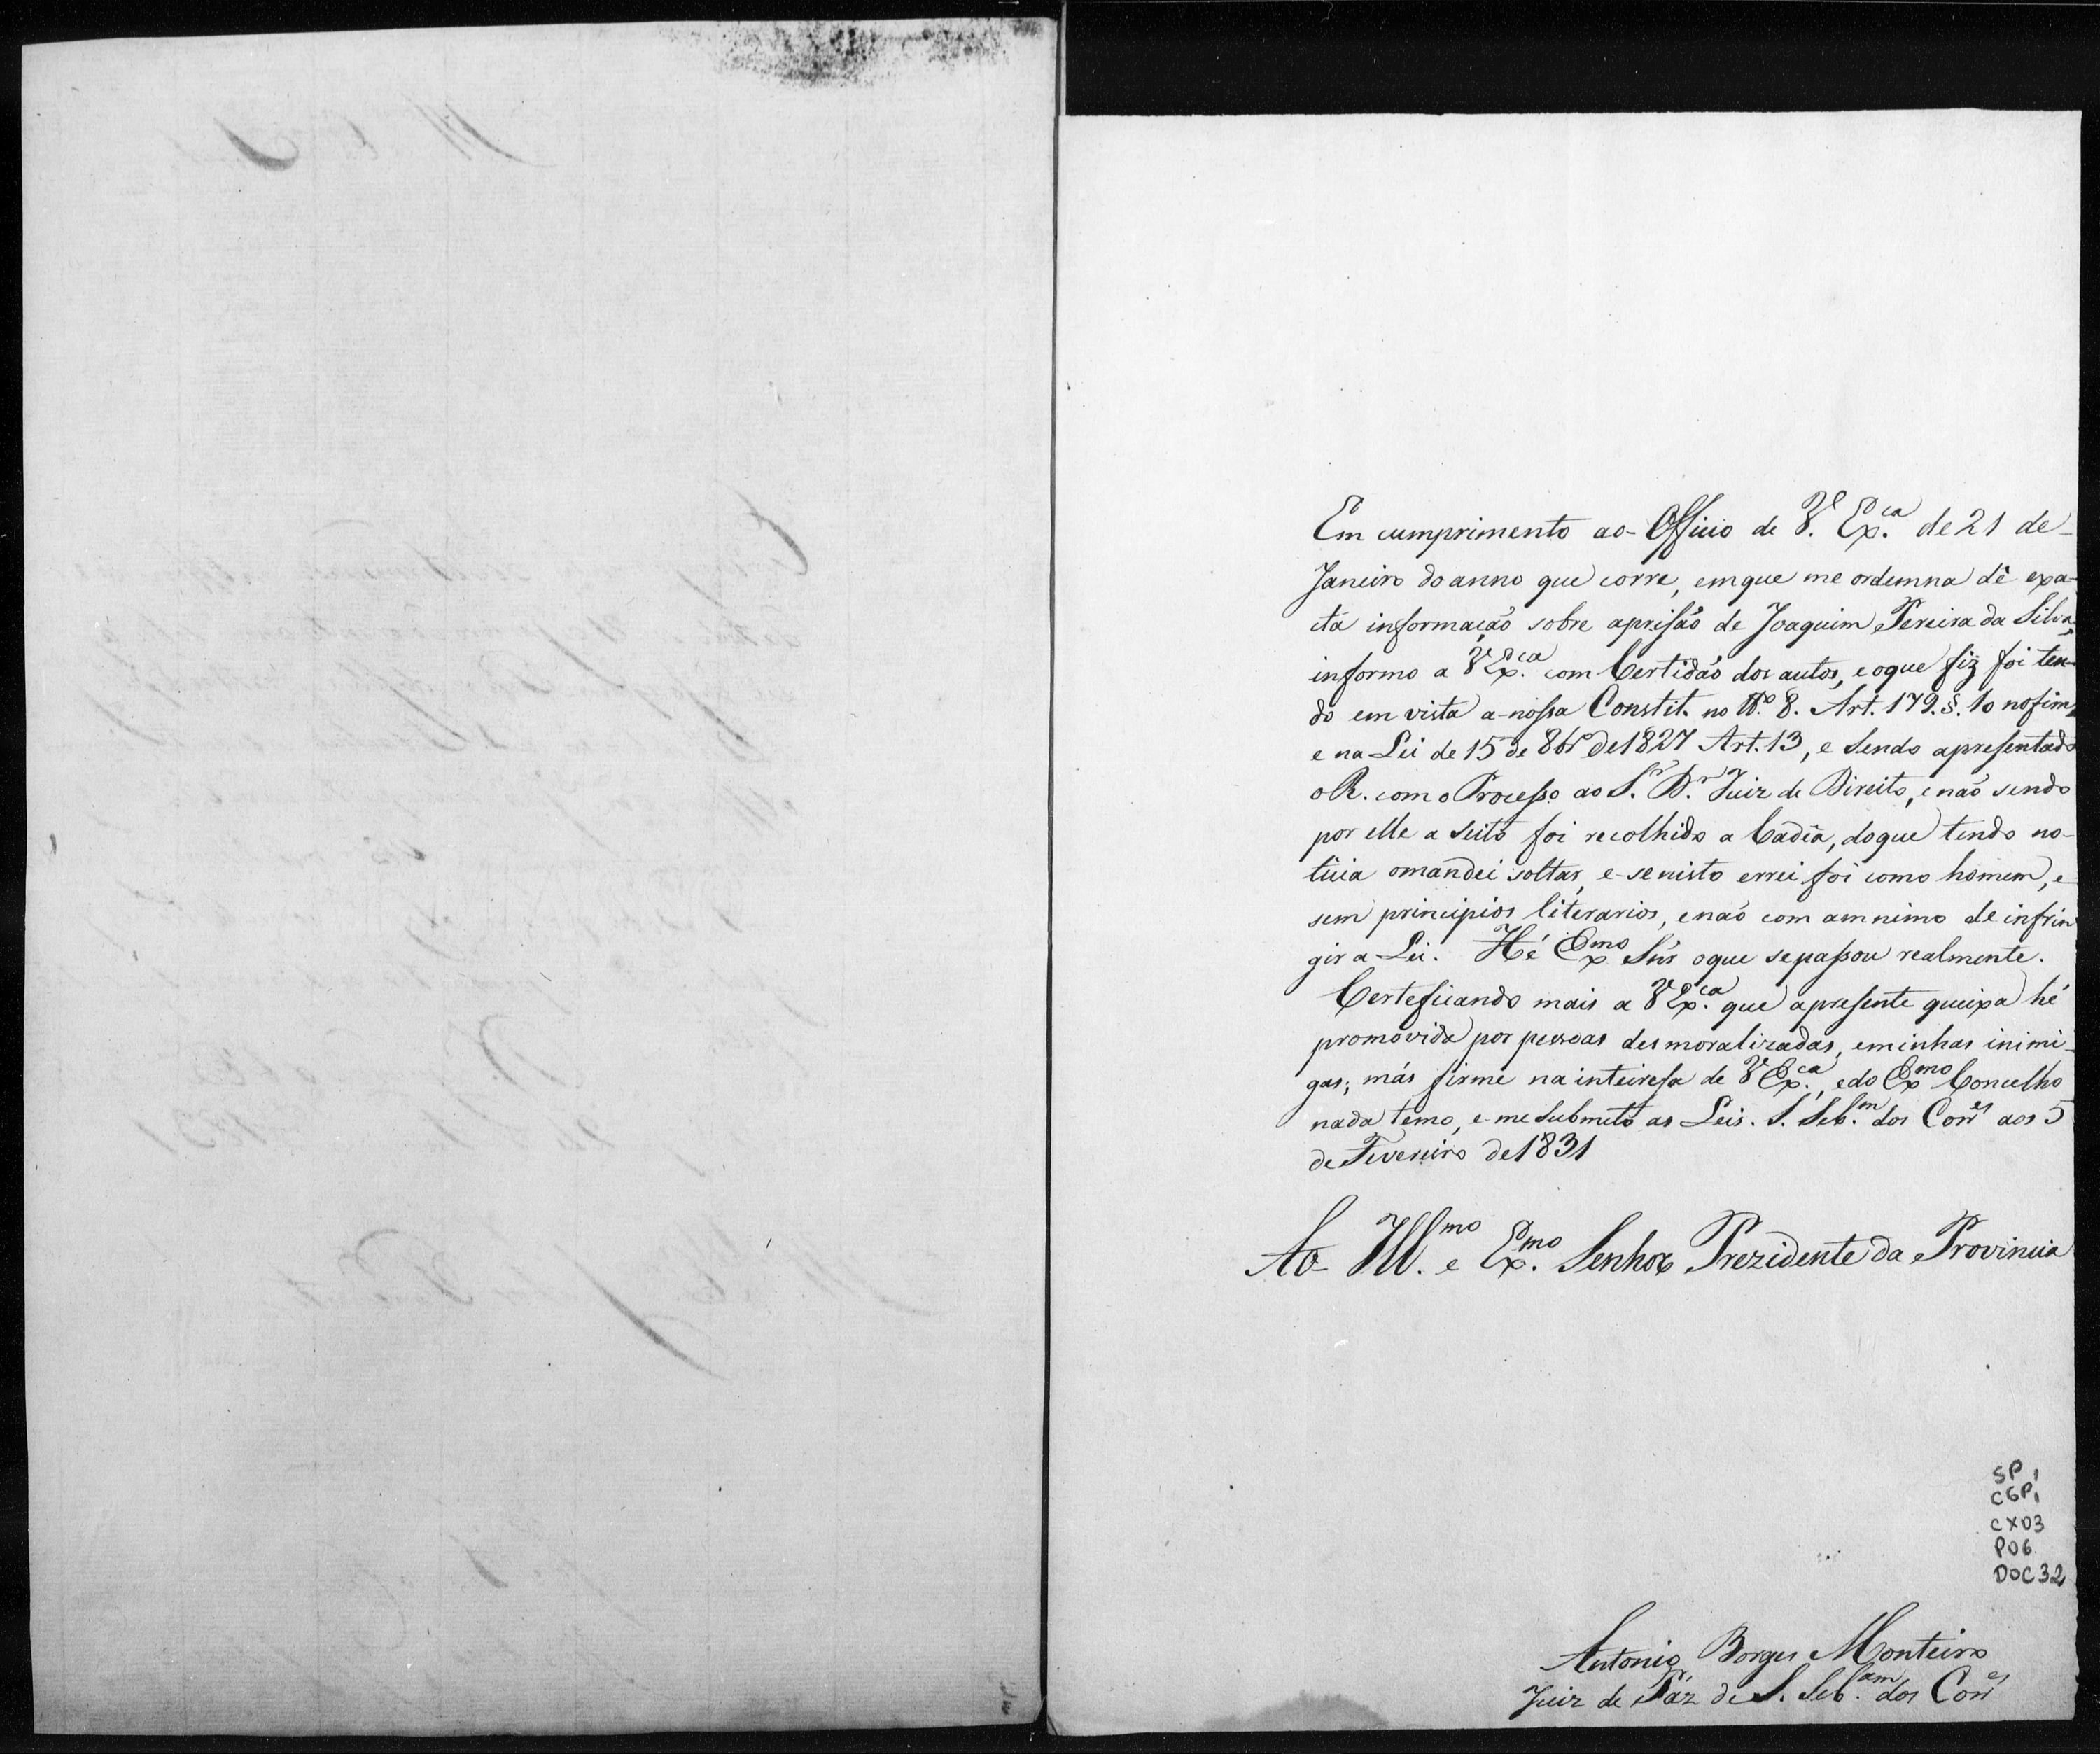 Em cumprimento ao Officio de V. Ex.ca de 21 de
Janeiro do anno que corre, emque me ordemna dê exa-
cta informação sobre aprisão de Joaquim Pereira da Silva,
informo a V Ex.ca com Certidão dos autos, e oque fiz foi ten-
do em vista a nossa Constit. no tt.o 8. Art. 179. §. 10 nofim,
e na Lei de 15 de 8br.o de1827 Art. 13, e sendo apresentado
oR. com o Processo ao S.r D.r Juiz de Direito, e não sendo
por elle a seito foi recolhido a Cadia, doque tendo no-
ticia omandei soltar, e se nisto errei foi como homem, e
sem principios literarios, enaõ com amnimo de infrin
gir a Lei. Hé Exmo Sñr oque sepassou realmente.
Certeficando mais a V Ex.ca que apresente queixa hé
promovida por pessoas desmoralizadas, eminhas inimi-
gas; más firme na inteiresa de V Ex.ca, edo Exmo Concelho
nada temo, e me submeto as Leis. S. Seb.m dos Corr.es aos 5
de Fevereiro de1831
Ao Ill.mo e Ex.mo Senhor Prezidente da Provincia
SP1
CGP1
CX03
P06
DOC32
Antonio Borges Monteiro
Juiz de Páz de S. Seb.am dos Corr.es